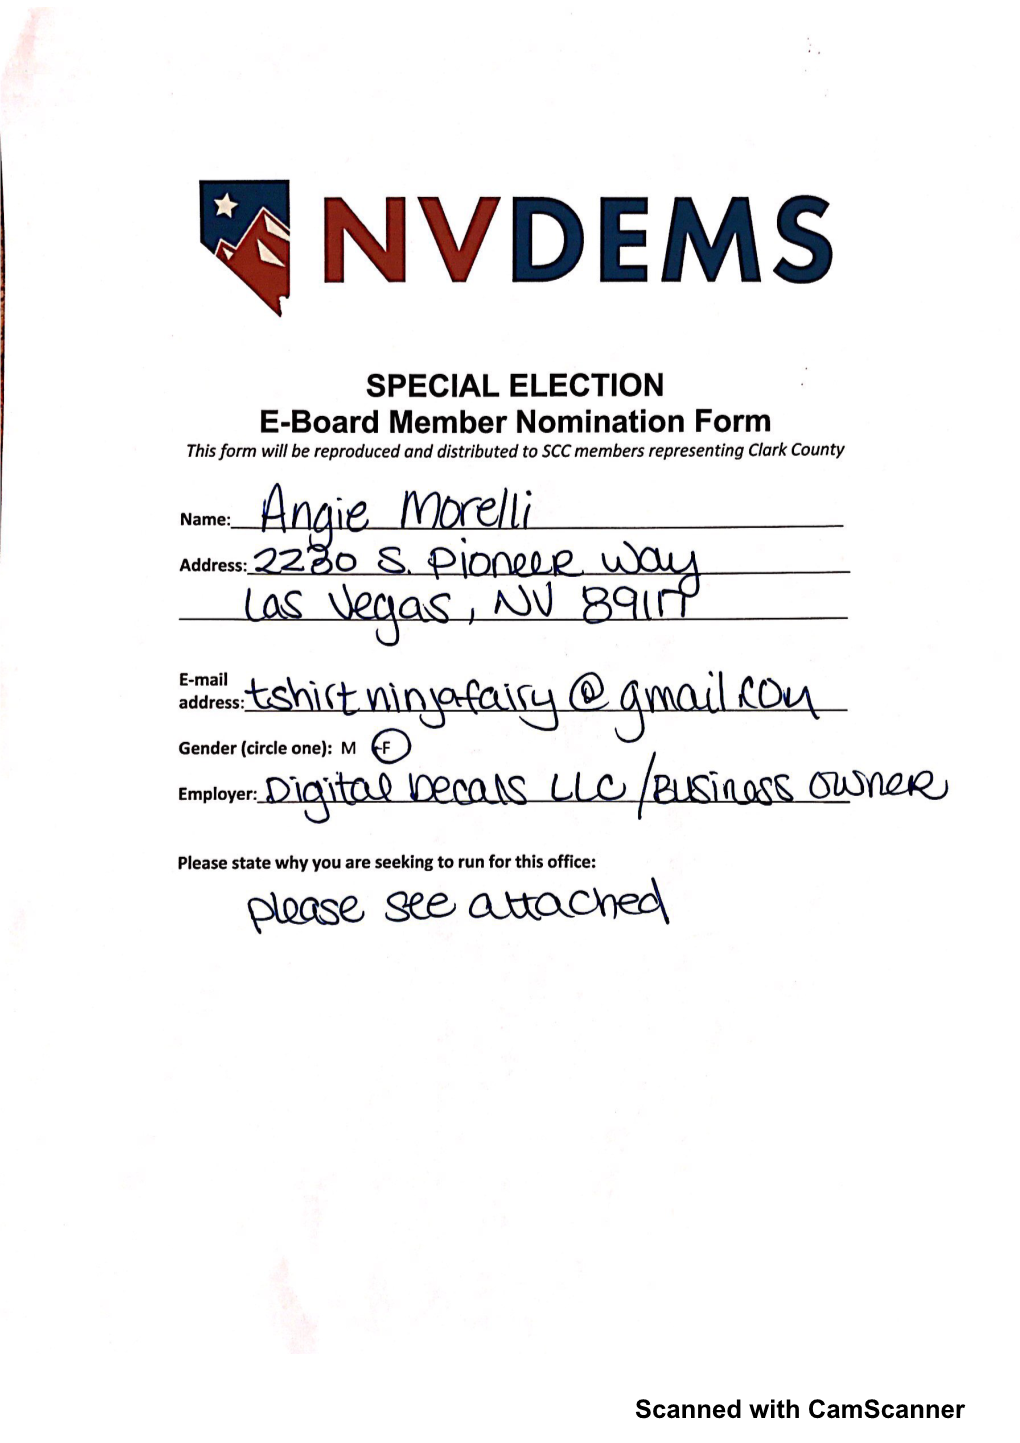 NVDEMS
SPECIAL ELECTION
E-Board Member Nomination Form
This form will be reproduced and distributed to SCC members representing Clark County
Name: Angie Morelli
Address: 2230 S. Pioneer Way
Las Vegas, NV 89117
E-mail
address: tshirtninjafairy@gmail.com
Gender (circle one): M F
Employer: Digital Decals LLC / Business owner
Please state why you are seeking to run for this office:
please see attached
Scanned with CamScanner